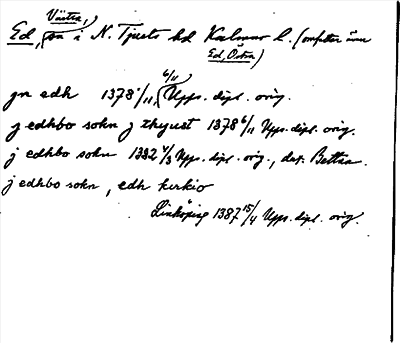 Västra,
Ed, sn i N. Tjusts hd Kalmar l. (omfattar även
Ed, Östra)
jn edh 1378 6/11 Upps. dipl. orig.
j edhbo sokn j thyust 1378 6/11 Upps. dipl. orig.
j edhbo sokn 1382 4/3 Upps. dipl. orig., det. Bettna.
j edhbo sokn, edh kirkio
Linköping 1387 15/4 Upps. dipl. orig.